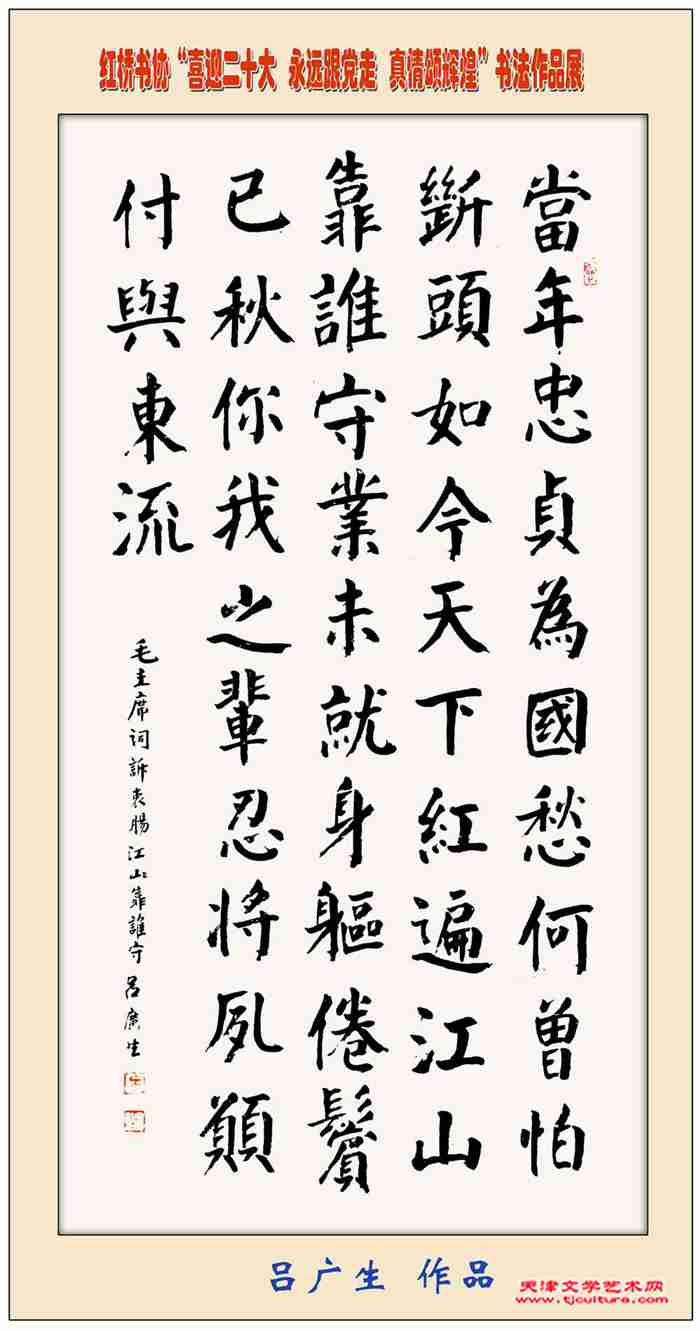 红桥书协“喜迎二十大 永远跟党走 真情颂辉煌”书法作品展
當年忠貞為國愁何曾怕
斷頭如今天下紅遍江山
靠誰守業未就身軀倦鬢
已秋你我之輩忍將夙願
付與東流
毛主席词訴衷腸江山靠誰守 吕廣生
吕广生 作品
天津文学艺术网
www.tjculture.com